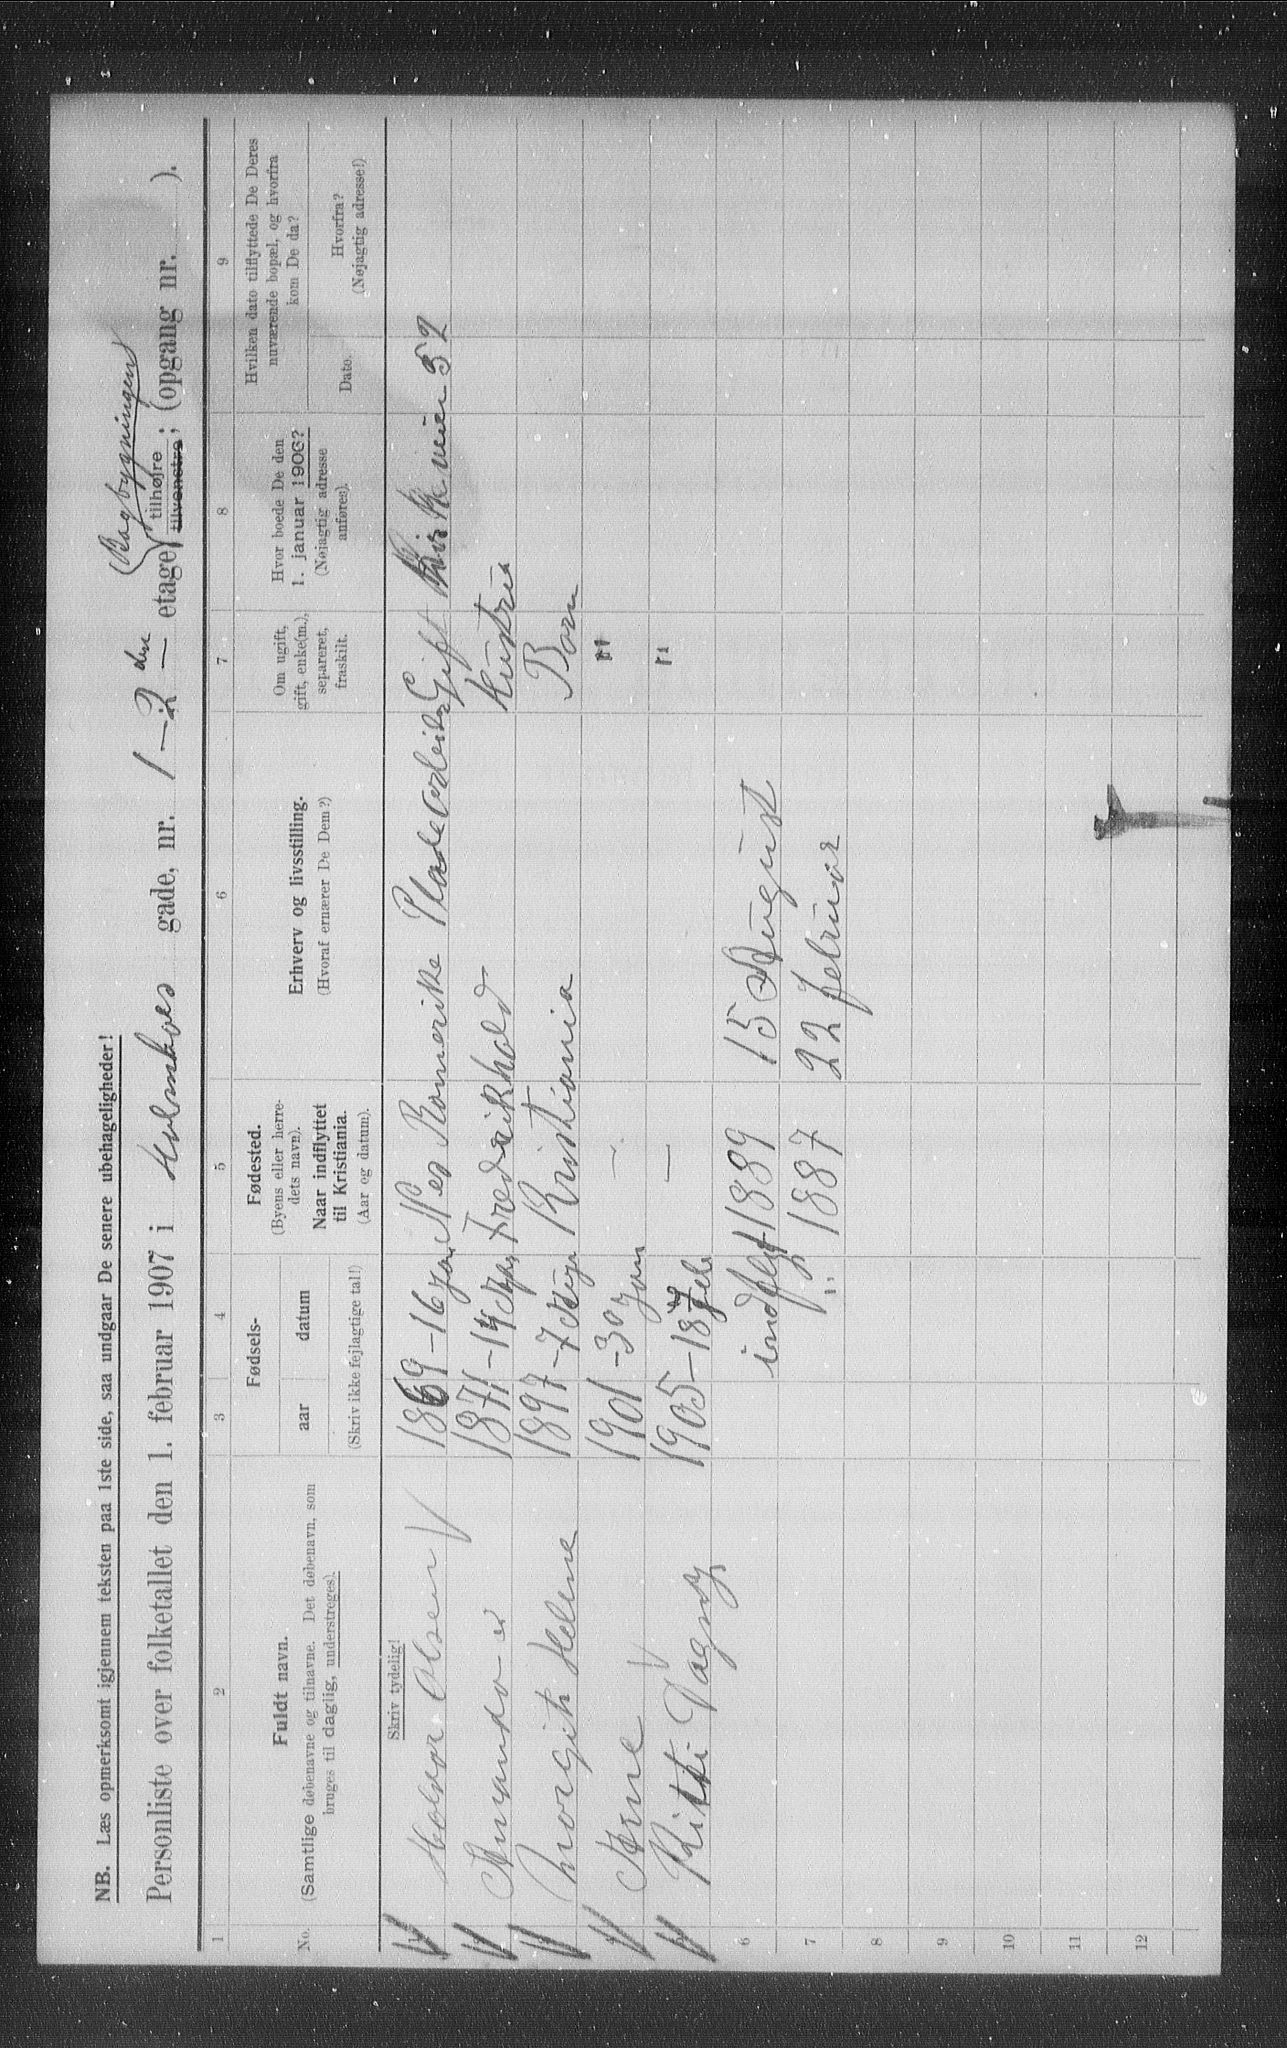 NB. Læs opmerksomt igjennem teksten paa 1ste side, saa undgaar De senere ubehageligheder!
(Bagbygningen
Personliste over folketallet den 1. februar 1907 i Holmboes gade, nr. 1 — 2 den — etage tilhøjre tilvenstre; (opgang nr. ).
1 2 3 4 5 6 7 8 9
No.
Fuldt navn.
(Samtlige døbenavne og tilnavne. Det døbenavn, som
bruges til daglig, understreges).
Fødsels-
aar datum
(Skriv ikke fejlagtige tal!)
Fødested.
(Byens eller herre-
dets navn).
Naar indflyttet
til Kristiania.
(Aar og datum).
Erhverv og livsstilling.
(Hvoraf ernærer De Dem?)
Om ugift,
gift, enke(m.),
separeret,
fraskilt.
Hvor boede De den
1. januar 1906?
(Nøjagtig adresse
anføres).
Hvilken dato tilflyttede De Deres
nuværende bopæl, og hvorfra
kom De da?
Dato.
Hvorfra?
(Nøjagtig adresse!)
Skriv tydelig!
1 Halvor Olsen 1869 - 16 Jan Nes Romerike Pladearbeider Gift Kirkeveien 52
2 Amanda 1871 - 14 Fredrikhald Hustru
3 Margit Helene 1897 - 7 Kristiania Barn
4 Arne 1901 - 30 Jan — "
5 Kitti Dagny 1905 - 18 feb — "
6 indflyt 1889 15 August
7 " 1887 22 februar
8
9
10
11
12